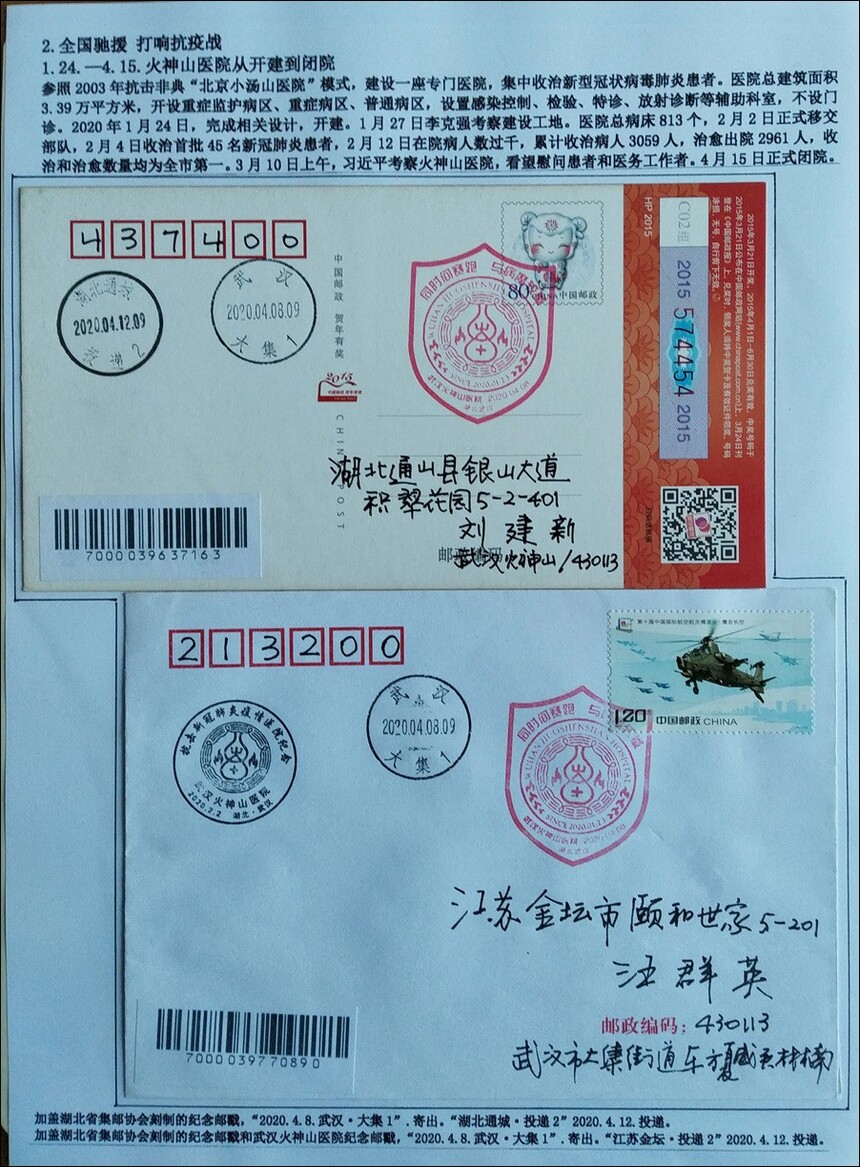 2.全国驰援 打响抗疫战
1.24.—4.15.火神山医院从开建到闭院
参照2003年抗击非典“北京小汤山医院”模式，建设一座专门医院，集中收治新型冠状病毒肺炎患者。医院总建筑面积
3.39万平方米，开设重症监护病区、重症病区、普通病区，设置感染控制、检验、特诊、放射诊断等辅助科室，不设门
诊。2020年1月24日，完成相关设计，开建。1月27日李克强考察建设工地。医院总病床813个，2月2日正式移交
部队，2月4日收治首批45名新冠肺炎患者，2月12日在院病人数过千，累计收治病人3059人，治愈出院2961人，收
治和治愈数量均为全市第一。3月10日上午，习近平考察火神山医院，看望慰问患者和医务工作者。4月15日正式闭院。
437400
湖北通城
2020.04.12.09
投递2
武汉
2020.04.08.09
大集1
中国邮政 贺年有奖
2015
CHINA POST
同时间赛跑 与病魔
WUHAN HUOSHENSHAN HOSPITAL
SINCE 2020.01.23
武汉火神山医院 2020.04.08
湖北武汉
80
CHINA中国邮政
HP 2015
C02组
2015 574454 2015
2015年3月21日开奖，2015年4月1日—6月30日兑奖有效。中奖号码于
2015年3月21日公布在中国邮政网站(www.chinapost.com.cn)上，3月24日刊
登在《中国邮政报》上。兑奖时，领奖人须持中奖贺卡及有效证件领奖，号码
涂损、无号、自行剪下无效。
湖北通山县银山大道
积翠花园5-2-401
刘建新
邮政编码
武汉火神山/430113
7000039637163
213200
抗击新冠肺炎疫情医院纪念
武汉火神山医院
2020.2.2 湖北·武汉
武汉
2020.04.08.09
大集1
同时间赛跑 与
WUHAN HUOSHENSHAN HOSPITAL
SINCE 2020.01.23
武汉火神山医院 2020.04.08
湖北武汉
第十届中国国际航空航天博览会·鹰击长空
1.20 中国邮政 CHINA
江苏金坛市颐和世家5-201
汪群英
邮政编码：430113
武汉市大集街道东
7000039770890
加盖湖北省集邮协会刻制的纪念邮戳，“2020.4.8.武汉·大集1”.寄出。“湖北通城·投递2”2020.4.12.投递。
加盖湖北省集邮协会刻制的纪念邮戳和武汉火神山医院纪念邮戳，“2020.4.8.武汉·大集1”.寄出。“江苏金坛·投递2”2020.4.12.投递。